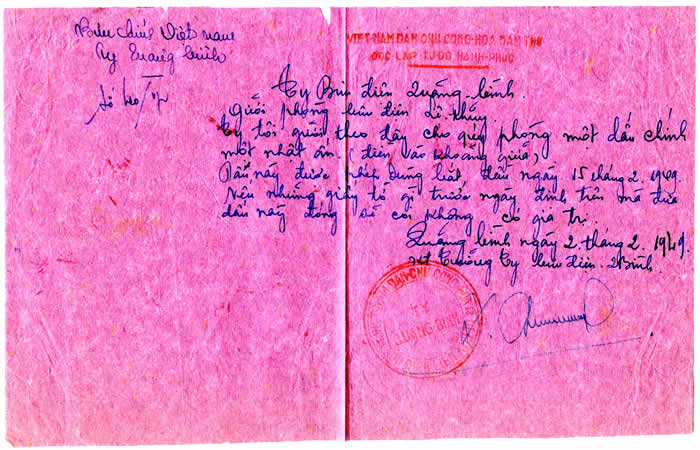 Bưu chính Việt nam
Ty Quảng bình
Số
VIỆT-NAM DÂN CHỦ CỘNG-HÒA DÂN THỨ
ĐỘC-LẬP TỰ-DO HẠNH-PHÚC
Ty Bưu điện Quảng-bình.
gửi phòng bưu điện Lệ thủy.
Ty tôi gửi theo đây cho quý phòng một dấu chính
một nhật ấn. (điền vào khoảng giữa)
Dấu này được phép dùng bắt đầu ngày 15 tháng 2. 1949.
Nếu những giấy tờ gì trước ngày định trên mà đưa
dấu này đóng sẽ coi không có giá trị.
Quảng bình ngày 2. tháng 2. 1949.
Trưởng Ty bưu điện. QBình.
DÂN-CHỦ CỘNG-HÒA
QUẢNG BÌNH